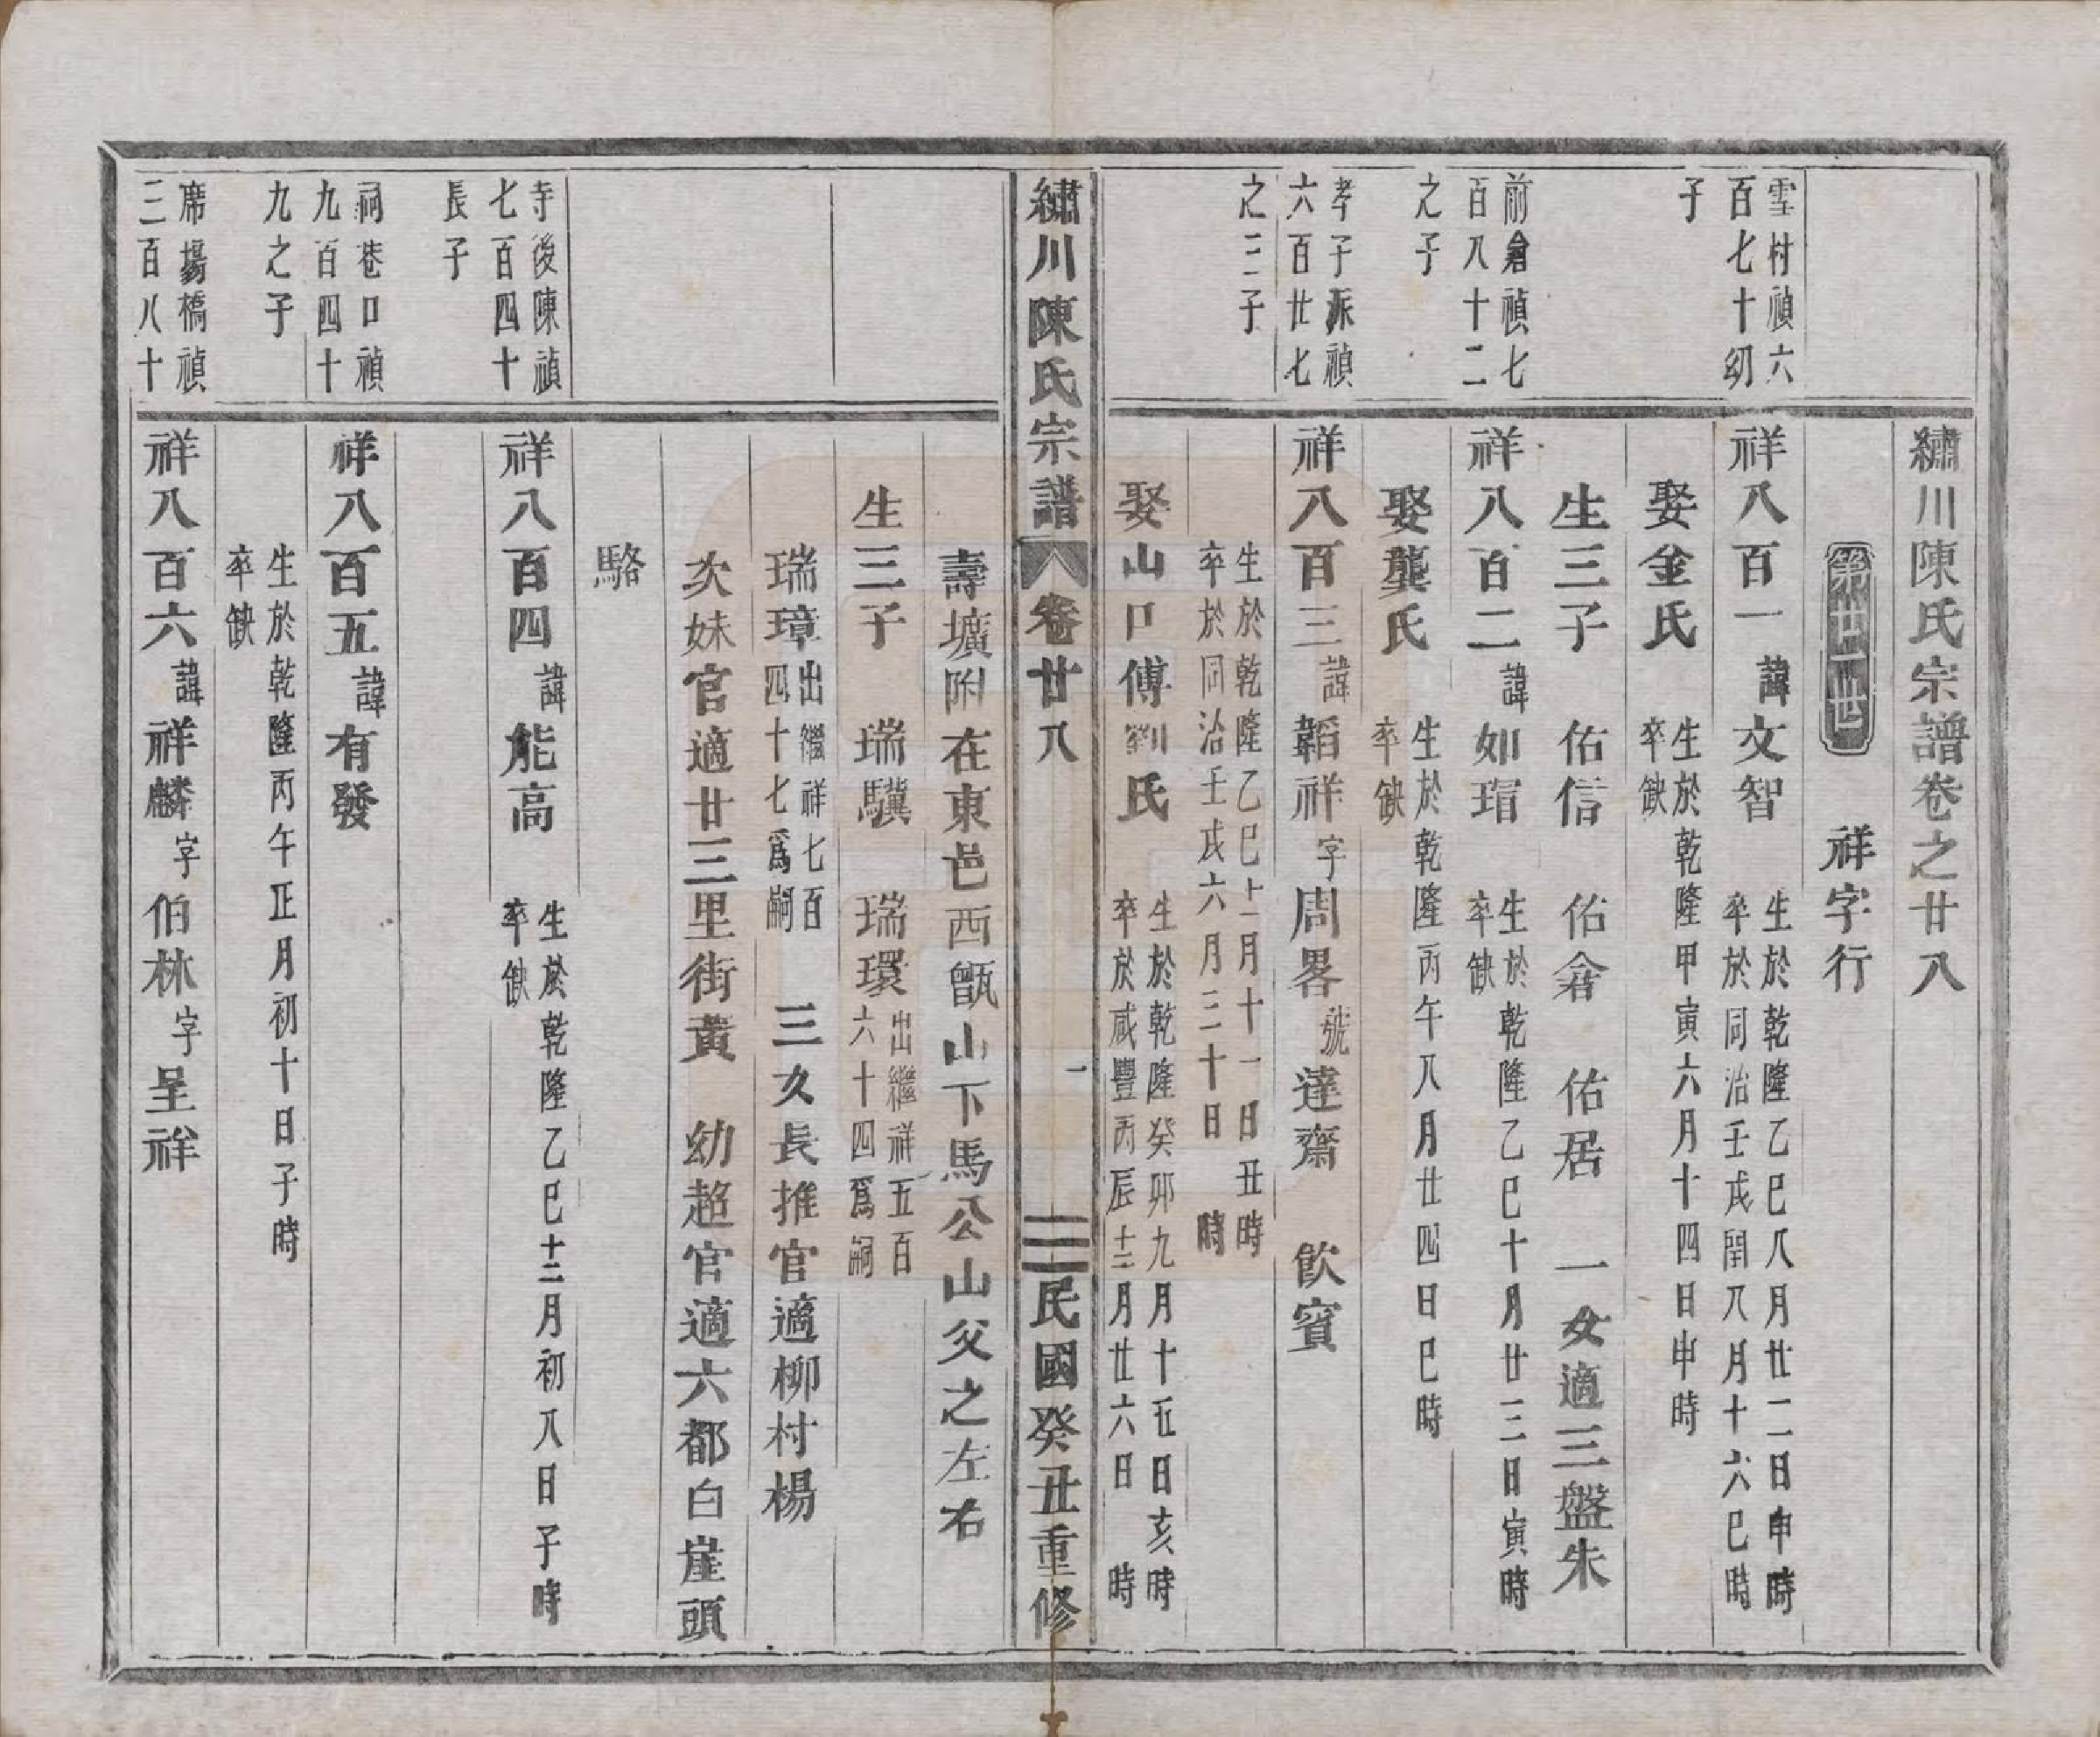 繡川陳氏宗譜卷之廿八
祥字行
雪村禎六
百七十幼
子
祥八百一諱文智
生於乾隆乙巳八月廿二日申時
卒於同治壬戌閏八月十六巳時
娶金氏
生於乾隆甲寅六月十四日申時
卒缺
生三子 佑信 佑畬 佑居 一女適三盤朱
前倉禎七
百八十二
之子
祥八百二諱如瑁
生於乾隆乙巳十月廿三日寅時
卒缺
娶龔氏
生於乾隆丙午八月廿四日巳時
卒缺
孝子派禎
六百廿七
之三子
祥八百三諱韜祥字周畧號達齋 飲賓
生於乾隆乙巳十一月十一日丑時
卒於同治壬戌六月三十日 時
娶山口傅劉氏
生於乾隆癸卯九月十五日亥時
卒於咸豐丙辰十二月廿六日 時
繡川陳氏宗譜 卷廿八 一 民國癸丑重修
壽壙附在東邑西甑山下馬公山父之左右
生三子 瑞驥 瑞環
出繼祥五百
六十四爲嗣
瑞璋
出繼祥七百
四十七爲嗣
三女長推官適柳村楊
次妹官適廿三里街黃 幼超官適六都白崖頭
駱
寺後陳禎
七百四十
長子
祥八百四諱能高
生於乾隆乙巳十二月初八日子時
卒缺
祠巷口禎
九百四十
九之子
祥八百五諱有發
生於乾隆丙午正月初十日子時
卒缺
席場橋禎
三百八十
祥八百六諱祥麟字伯林字呈祥